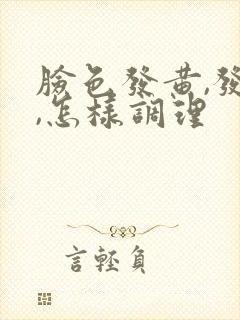 臉色發黃,發
,怎樣調理
言輕負